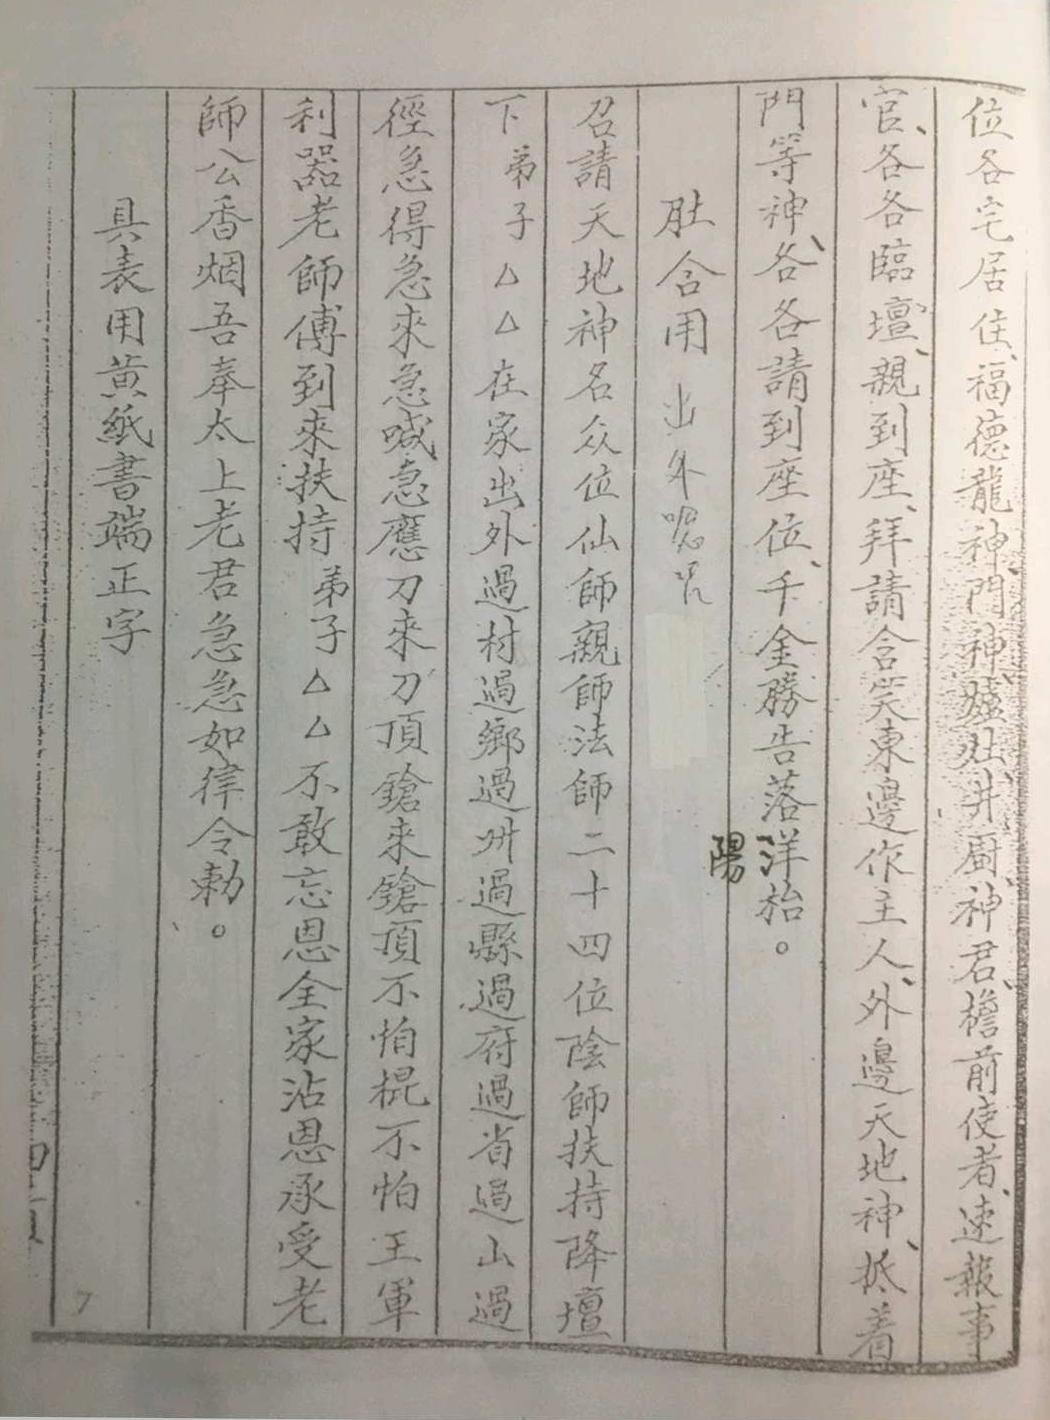 位各宅居住、福德龍神、門神、爐灶、井廚、神君、檐前使者、速報事
官、各各臨壇、親到座、拜請含笑東邊作主人、外邊天地神、抵着
門等神、各各請到座位、千金勝告落洋枱。
陽
肚含用 出外
召請天地神名众位仙師親師法師二十四位陰師扶持降壇
下弟子△△在家出外過村過鄉過州過縣過府過省過山過
徑急得急來急喊急應刀來刀頂鎗來鎗頂不怕棍不怕王軍
利器老師傅到來扶持弟子△△不敢忘恩全家沾恩承受老
師公香烟吾奉太上老君急急如律令勅。
具表用黃紙書端正字
7